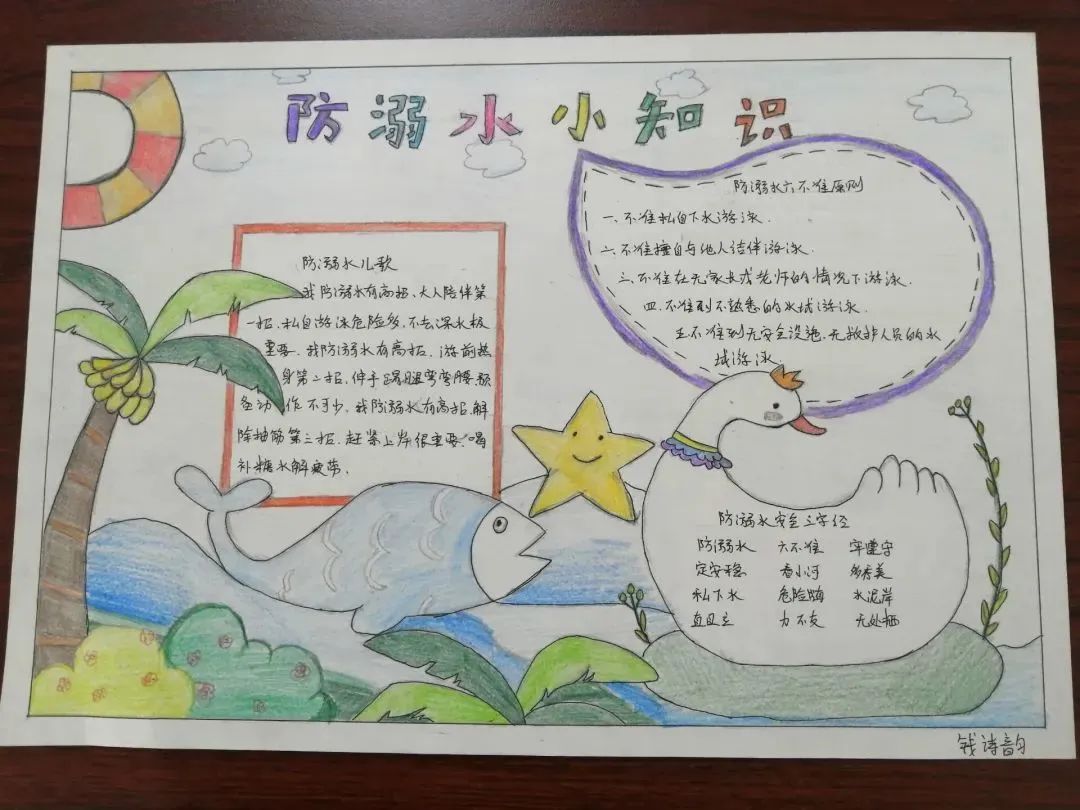 防溺水小知识
防溺水儿歌
我防溺水有高招，大人陪伴第
一招，私自游泳危险多，不去深水极
重要，我防溺水有高招，游前热
身第二招，伸手踢腿弯弯腰，预
备动作不可少，我防溺水有高招，解
除抽筋第三招，赶紧上岸很重要，喝
补糖水解疲劳，
防溺水六不准原则
一、不准私自下水游泳．
二、不准擅自与他人结伴游泳．
三、不准在无家长或老师的情况下游泳．
四、不准到不熟悉的水域游泳．
五、不准到无安全设施、无救护人员的水
域游泳．
防溺水安全三字经
防溺水 六不准 牢遵守
定安稳 看小河 多秀美
私下水 危险临 水泥岸
直且立 力不支 无处栖
钱诗韵